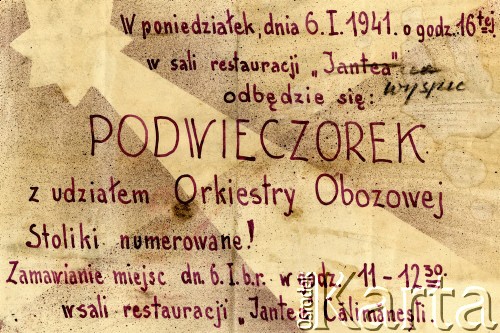 W poniedziałek, dnia 6.I.1941. o godz. 16tej
w sali restauracji „Jantea"
na wyspie
odbędzie się:
PODWIECZOREK
z udziałem Orkiestry Obozowej
Stoliki numerowane!
Zamawianie miejsc dn. 6.I.b.r. w godz. 11-12 30
w sali restauracji „Jantea" Călimănești.
ośrodek
Karta